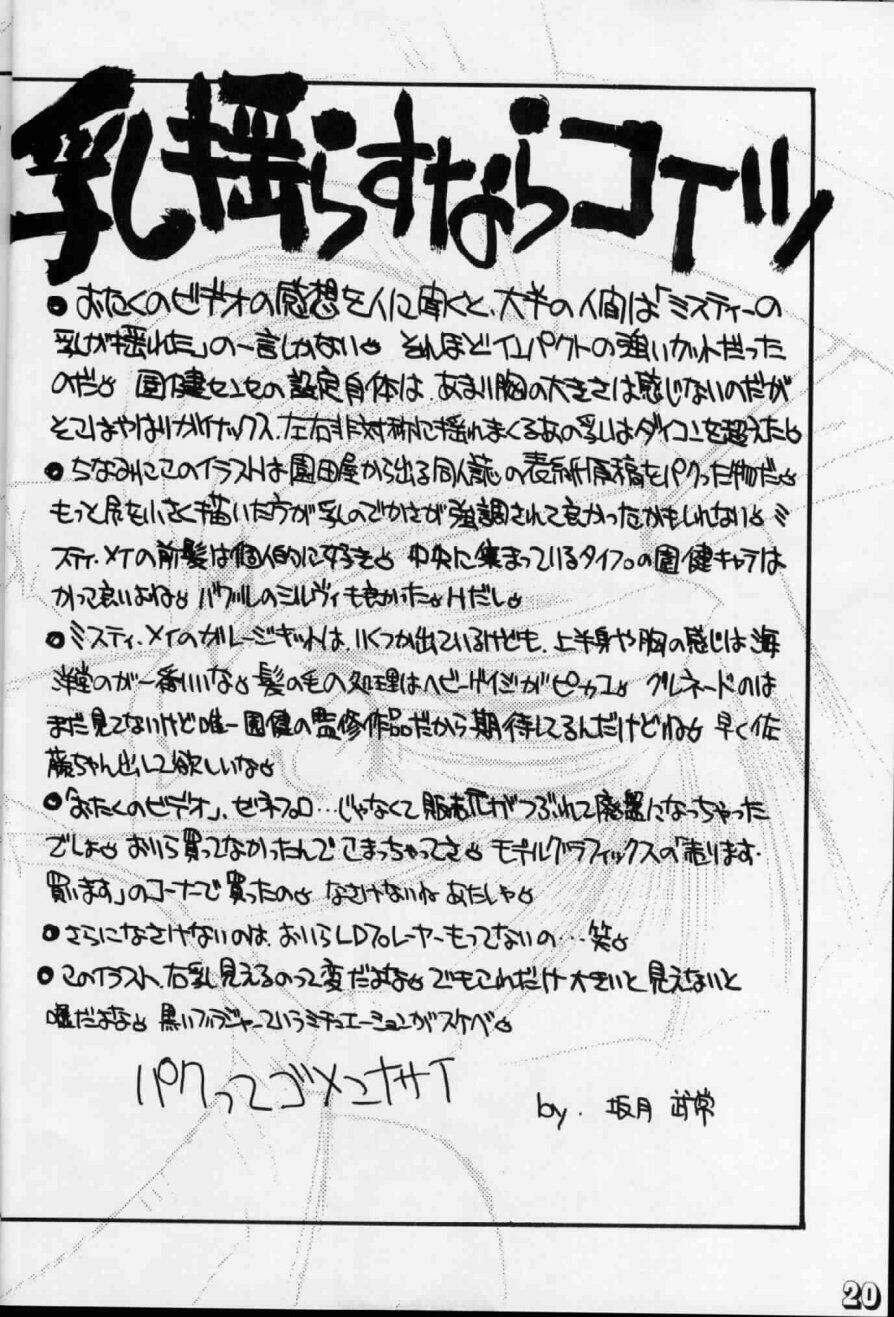 乳揺らすならコイツ
●おたくのビデオの感想を人に聞くと、大半の人間は「ミスティーの
乳が揺れた」の一言しかない。 それほどインパクトの強いカットだった
のだ。 園健センセの設定自体は、あまり胸の大きさは感じないのだが
そこはやはりガイナックス、左右非対称に揺れまくるあの乳はダイコンを超えた。
●ちなみにこのイラストは園田屋から出る同人誌の表紙原稿をパクった物だ。
もっと尻を小さく描いた方が乳のでかさが強調されて良かったかもしれない。ミ
スティ・メイの前髪は個人的に好き。 中央に集まっているタイプの園健キャラは
かって良いよね。 バウルのシルヴィも良かった。Hだし。
●ミスティ・メイのガレージキットは、いくつか出ているけども、上半身や胸の感じは海
洋堂のが一番いいな。髪の毛の処理はヘビーゲイジがピカコ。 グレネードのは
まだ見てないけど唯一園健の監修作品だから期待してるんだけどね。 早く佐
藤ちゃん出して欲しいな。
●「おたくのビデオ」、ゼネプロ…じゃなくて販売元がつぶれて廃盤になっちゃった
でしょ。おいら買ってなかったんでこまっちゃってさ。モデルグラフィックスの「売ります・
買います」のコーナーで買ったの。 なさけないねあたしゃ。
●さらになさけないのは、おいらLDプレーヤーもってないの…笑。
●このイラスト、右乳見えるのって変だよな。でもこれだけ大きいと見えないと
嘘だよな。 黒いブラジャーっていうシチュエーションがスケベ。
パクってゴメンナサイ
by. 坂月 武常
20